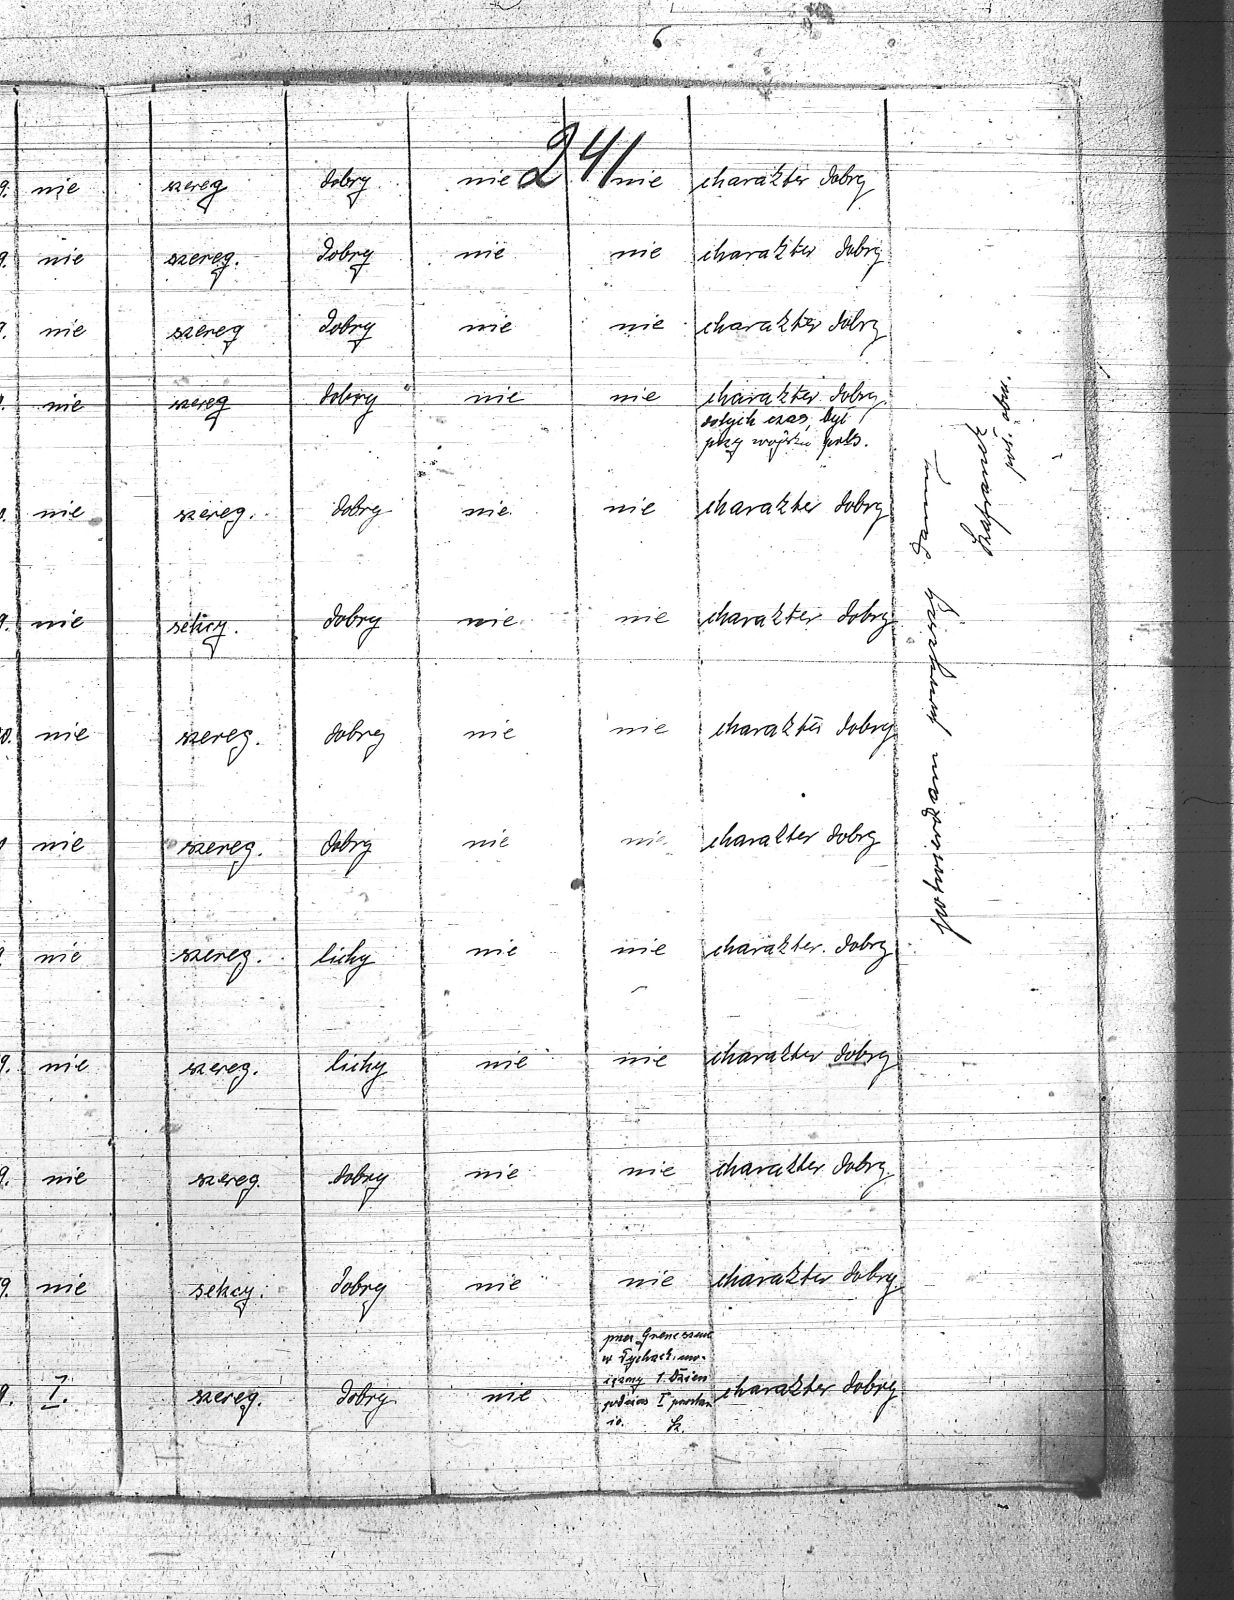 6
241
9. nie szereg dobry nie nie charakter dobry
9. nie szereg. dobry nie nie charakter dobry
9. nie szereg dobry nie nie charakter dobry
nie szereg dobry nie nie charakter dobry.
czas był
przy wojsku pols.
nie szereg. dobry nie nie charakter dobry
9. nie sekcy. dobry nie nie charakter dobry
0. nie szereg. dobry nie nie charakter dobry
nie szereg. dobry nie nie charakter dobry
nie szereg. lichy nie nie charakter dobry
9. nie szereg. lichy nie nie charakter dobry
9. nie szereg. dobry nie nie charakter dobry.
9. nie sekcy. dobry nie nie charakter dobry.
przez
w Tychach
1. dzień
podczas I
9. I. szereg. dobry nie charakter dobry
potwierdzam powyższy
Szafranek